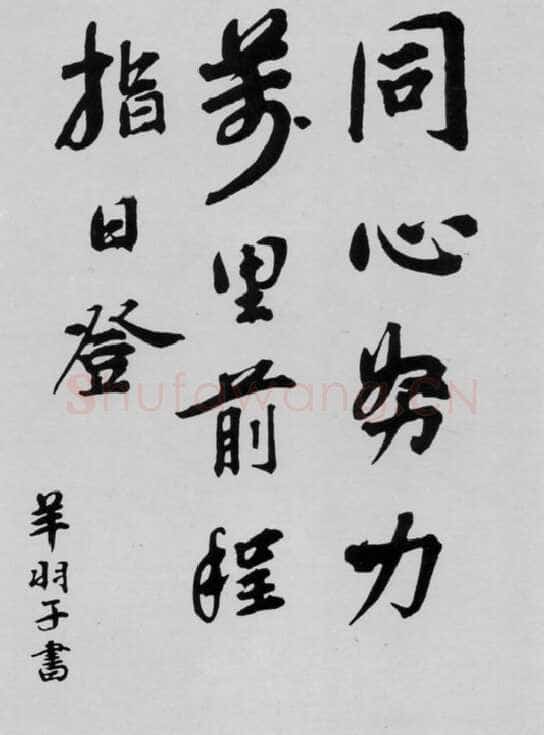 同心努力
萬里前程
指日登
羊羽子書
Shufawang.CN